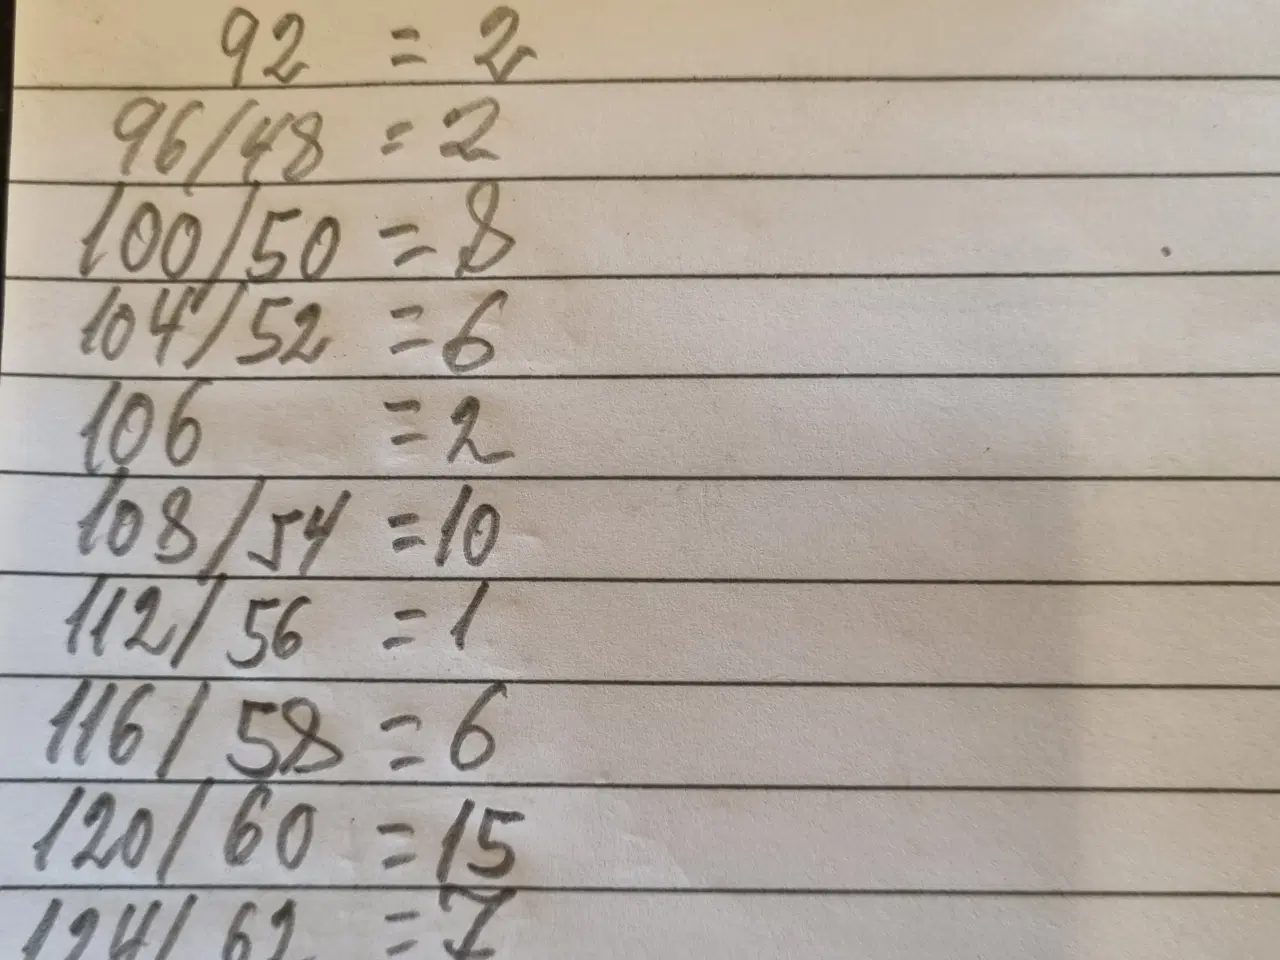 92 = 2
96/48 = 2
100/50 = 8
104/52 = 6
106 = 2
108/54 = 10
112/56 = 1
116/58 = 6
120/60 = 15
124/62 = 7